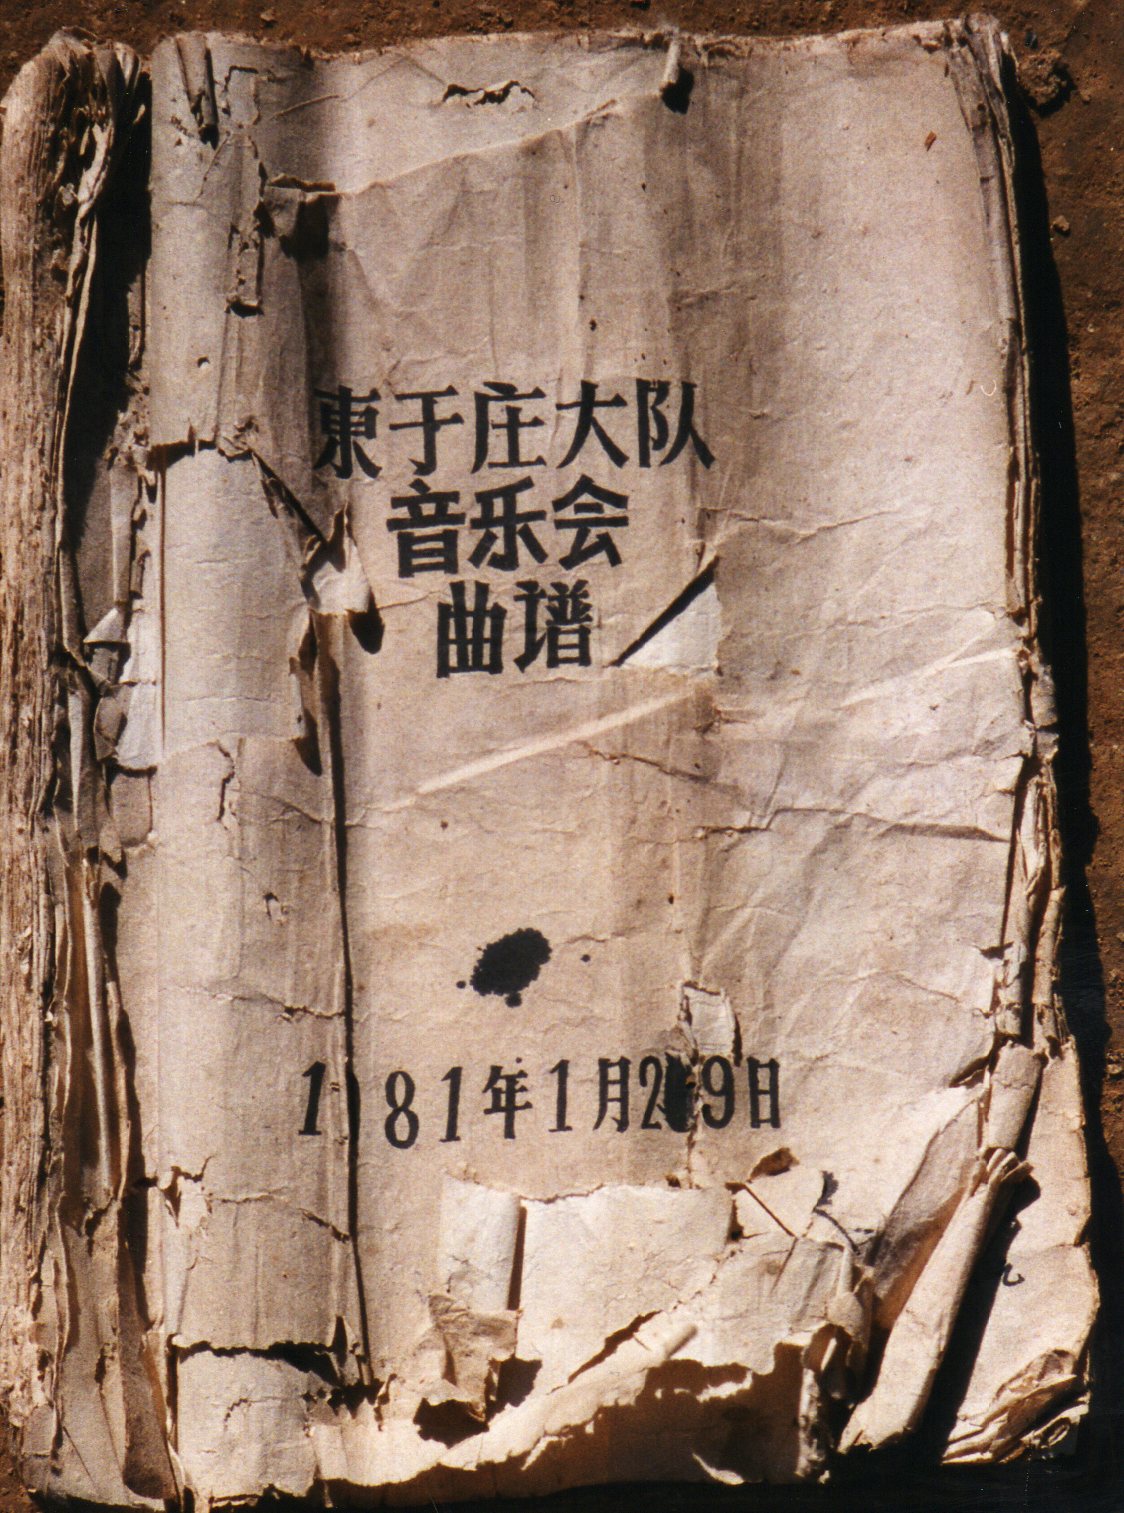 東于庄大队
音乐会
曲谱
1 81年1月2 9日